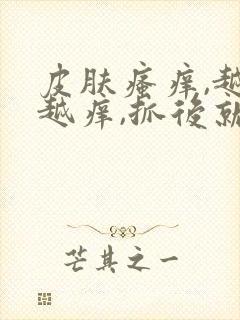 皮肤瘙痒,越
越痒,抓後就
芒其之一